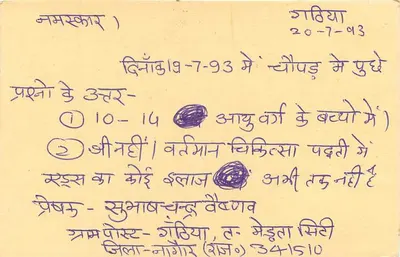 नमस्कार।
गठिया
20-7-93
दिनाँक 19-7-93 में चौपड़ मे पुछे
प्रश्नो के उत्तर-
① 10-14 आयु वर्ग के बच्चो में।
② श्री नहीं। वर्तमान चिकित्सा पद्दती में
एड्स का कोई इलाज अभी तक नहीं है
प्रेषक- सुभाषचन्द्र वैष्णव
ग्रामपोस्ट- गँठिया, त॰ मेड़ता सिटी
जिला-नागौर (राज॰) 341510